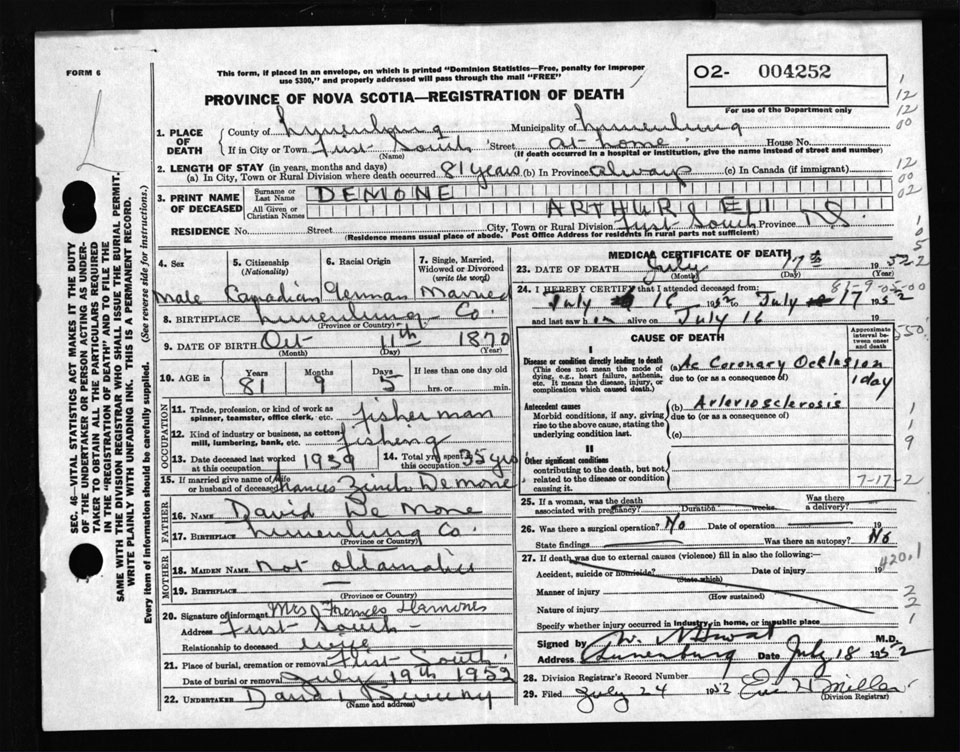 FORM 6
This form, if placed in an envelope, on which is printed "Dominion Statistics—Free, penalty for improper
use $300," and properly addressed will pass through the mail "FREE"
O2- 004252
For use of the Department only
PROVINCE OF NOVA SCOTIA—REGISTRATION OF DEATH
1. PLACE OF DEATH County of Lunenburg Municipality of Lunenburg
If in City or Town First South Street at home House No.
(Name) (If death occurred in a hospital or institution, give the name instead of street and number)
2. LENGTH OF STAY (in years, months and days)
(a) In City, Town or Rural Division where death occurred 81 years (b) In Province always (c) In Canada (if immigrant)
3. PRINT NAME OF DECEASED Surname or Last Name DEMONE
All Given or Christian Names ARTHUR ELI
RESIDENCE No. Street City, Town or Rural Division First South Province N.S.
(Residence means usual place of abode. Post Office Address for residents in rural parts not sufficient)
4. Sex 5. Citizenship (Nationality) 6. Racial Origin 7. Single, Married, Widowed or Divorced (write the word)
Male Canadian German Married
8. BIRTHPLACE Lunenburg Co.
(Province or Country)
9. DATE OF BIRTH Oct 11th 1870
(Month) (Day) (Year)
10. AGE in Years 81 Months 9 Days 5 If less than one day old hrs. or min.
OCCUPATION
11. Trade, profession, or kind of work as spinner, teamster, office clerk, etc. fisherman
12. Kind of industry or business, as cotton mill, lumbering, bank, etc. fishing
13. Date deceased last worked at this occupation 1939 14. Total yrs. spent in this occupation 35 yrs
15. If married give name of wife or husband of deceased Frances Zinck Demone
FATHER
16. NAME David De Mone
17. BIRTHPLACE Lunenburg Co
(Province or Country)
MOTHER
18. MAIDEN NAME Not obtainable
19. BIRTHPLACE —
(Province or Country)
20. Signature of informant Mrs Frances Demone
Address First South
Relationship to deceased wife
21. Place of burial, cremation or removal First South
Date of burial or removal July 19th 1952
22. UNDERTAKER David
(Name and address)
MEDICAL CERTIFICATE OF DEATH
23. DATE OF DEATH July 17th 1952
(Month) (Day) (Year)
24. I HEREBY CERTIFY that I attended deceased from:
July 16 1952 to July 17 1952
and last saw h alive on July 16 19
CAUSE OF DEATH
Approximate interval between onset and death
I
Disease or condition directly leading to death
(This does not mean the mode of dying, e.g., heart failure, asthenia, etc. It means the disease, injury, or complication which caused death.)
(a) Ac Coronary Occlusion
due to (or as a consequence of) 1 day
Antecedent causes
Morbid conditions, if any, giving rise to the above cause, stating the underlying condition last.
(b) Arteriosclerosis
due to (or as a consequence of)
(c)
II
Other significant conditions
contributing to the death, but not related to the disease or condition causing it.
7-17-2
25. If a woman, was the death associated with pregnancy? Duration weeks. Was there a delivery?
26. Was there a surgical operation? No Date of operation 19
State findings Was there an autopsy? No
27. If death was due to external causes (violence) fill in also the following:
Accident, suicide or homicide? Date of injury 19
(State which)
Manner of injury
(How sustained)
Nature of injury
Specify whether injury occurred in industry, in home, or in public place
420.1
Signed by M.D.
Address Lunenburg Date July 18 1952
28. Division Registrar's Record Number
29. Filed July 24 1952
(Division Registrar)
SEC. 46—VITAL STATISTICS ACT MAKES IT THE DUTY
OF THE UNDERTAKER OR PERSON ACTING AS UNDER-
TAKER TO OBTAIN ALL THE PARTICULARS REQUIRED
IN THE "REGISTRATION OF DEATH" AND TO FILE THE
SAME WITH THE DIVISION REGISTRAR WHO SHALL ISSUE THE BURIAL PERMIT.
WRITE PLAINLY WITH UNFADING INK. THIS IS A PERMANENT RECORD.
Every item of information should be carefully supplied. (See reverse side for instructions.)